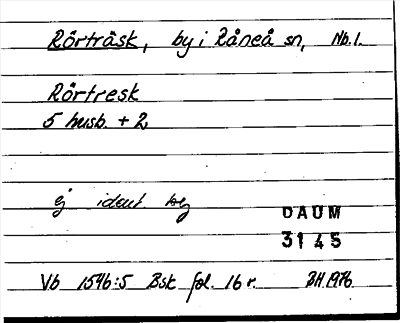 Rörträsk, by i Råneå sn, Nb.l.
Rörtresk
5 husb. + 2
ej ident. beg
DAUM
3145
Vb 1546:5 Bsk fol. 16 r. BH 1976